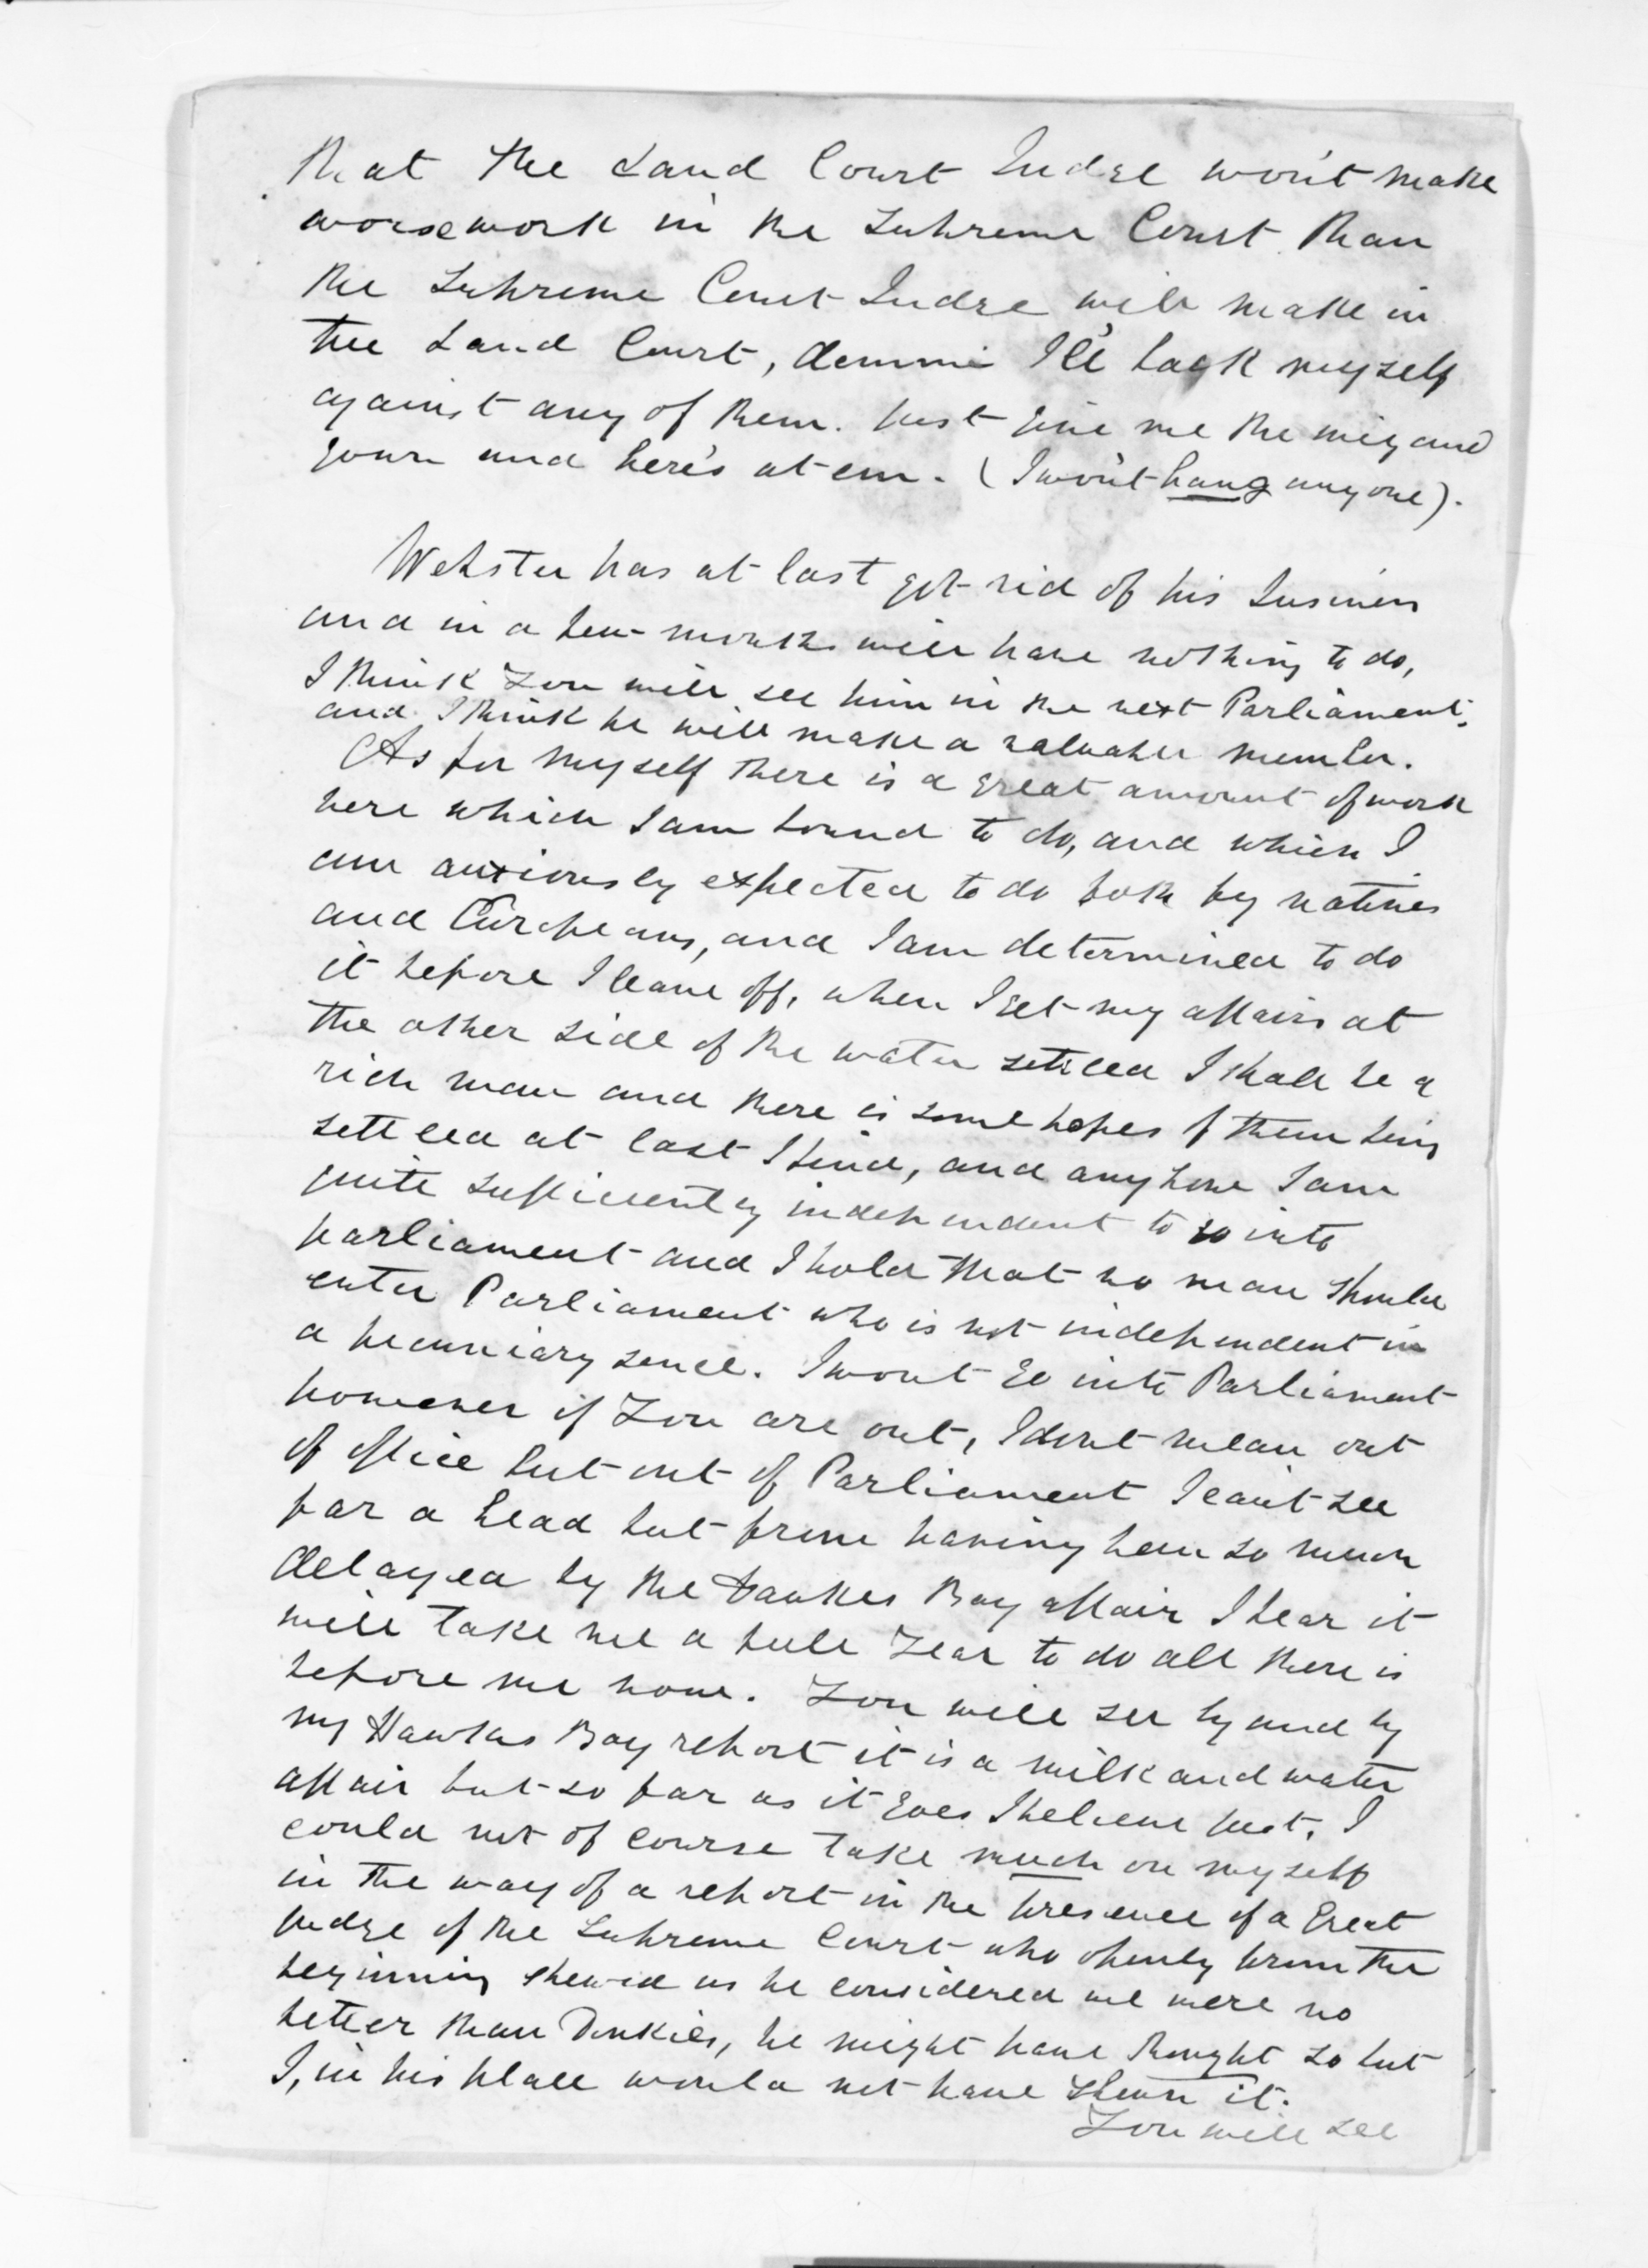 that the Land Court Judge won't make
worse work in the Supreme Court than
the Supreme Court Judge will make in
the Land Court, demmi I'll back myself
against any of them. Just give me the wig and
gown and here's at em. (I won't hang any one).
Webster has at last got rid of his business
and in a few months will have nothing to do,
I think you will see him in the next Parliament,
and I think he will make a valuable member.
As for myself there is a great amount of work
here which I am bound to do, and which I
am anxiously expected to do both by natives
and Europeans, and I am determined to do
it before I leave off, when I get my affairs at
the other side of the water settled I shall be a
rich man and there is some hopes of them being
settled at last I find, and any how I am
quite sufficiently independent to go into
parliament and I hold that no man should
enter Parliament who is not independent in
a pecuniary sence. I wont go into Parliament
however if you are out, I dont mean out
of office but out of Parliament I cant see
far a head but from having been so much
delayed by the Hawkes Bay affair I fear it
will take me a full year to do all there is
before me now. You will see by and by
my Hawkes Bay report it is a milk and water
affair but so far as it goes I believe just, I
could not of course take much on myself
in the way of a report in the presence of a Great
judge of the Supreme Court who openly from the
beginning shewed us he considered we were no
better than Donkies, he might have thought so but
I, in his place would not have shewn it.
You will see